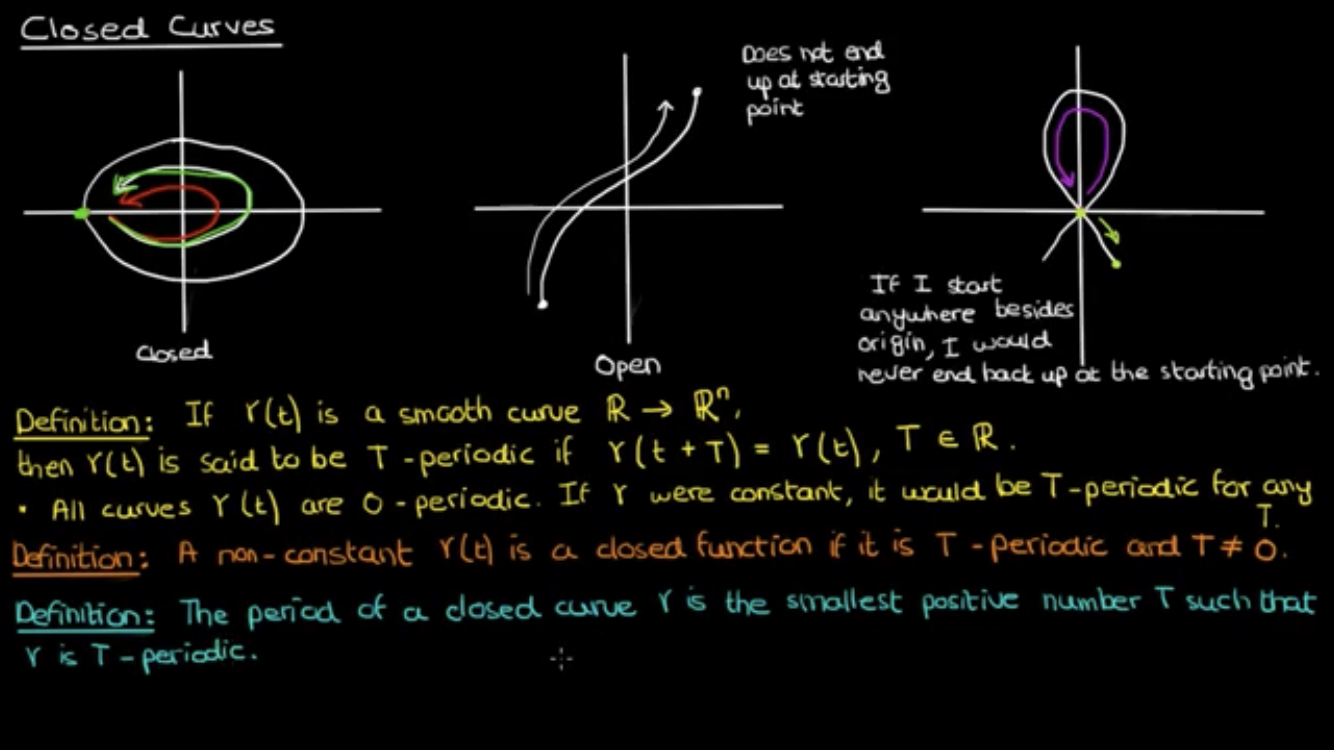 Closed Curves
Does not end
up at starting
point
If I start
anywhere besides
origin, I would
never end back up at the starting point.
Closed
Open
Definition: If γ(t) is a smooth curve ℝ → ℝⁿ,
then γ(t) is said to be T-periodic if γ(t + T) = γ(t), T ∈ ℝ.
• All curves γ(t) are 0-periodic. If γ were constant, it would be T-periodic for any
T.
Definition: A non-constant γ(t) is a closed function if it is T-periodic and T ≠ 0.
Definition: The period of a closed curve γ is the smallest positive number T such that
γ is T-periodic.